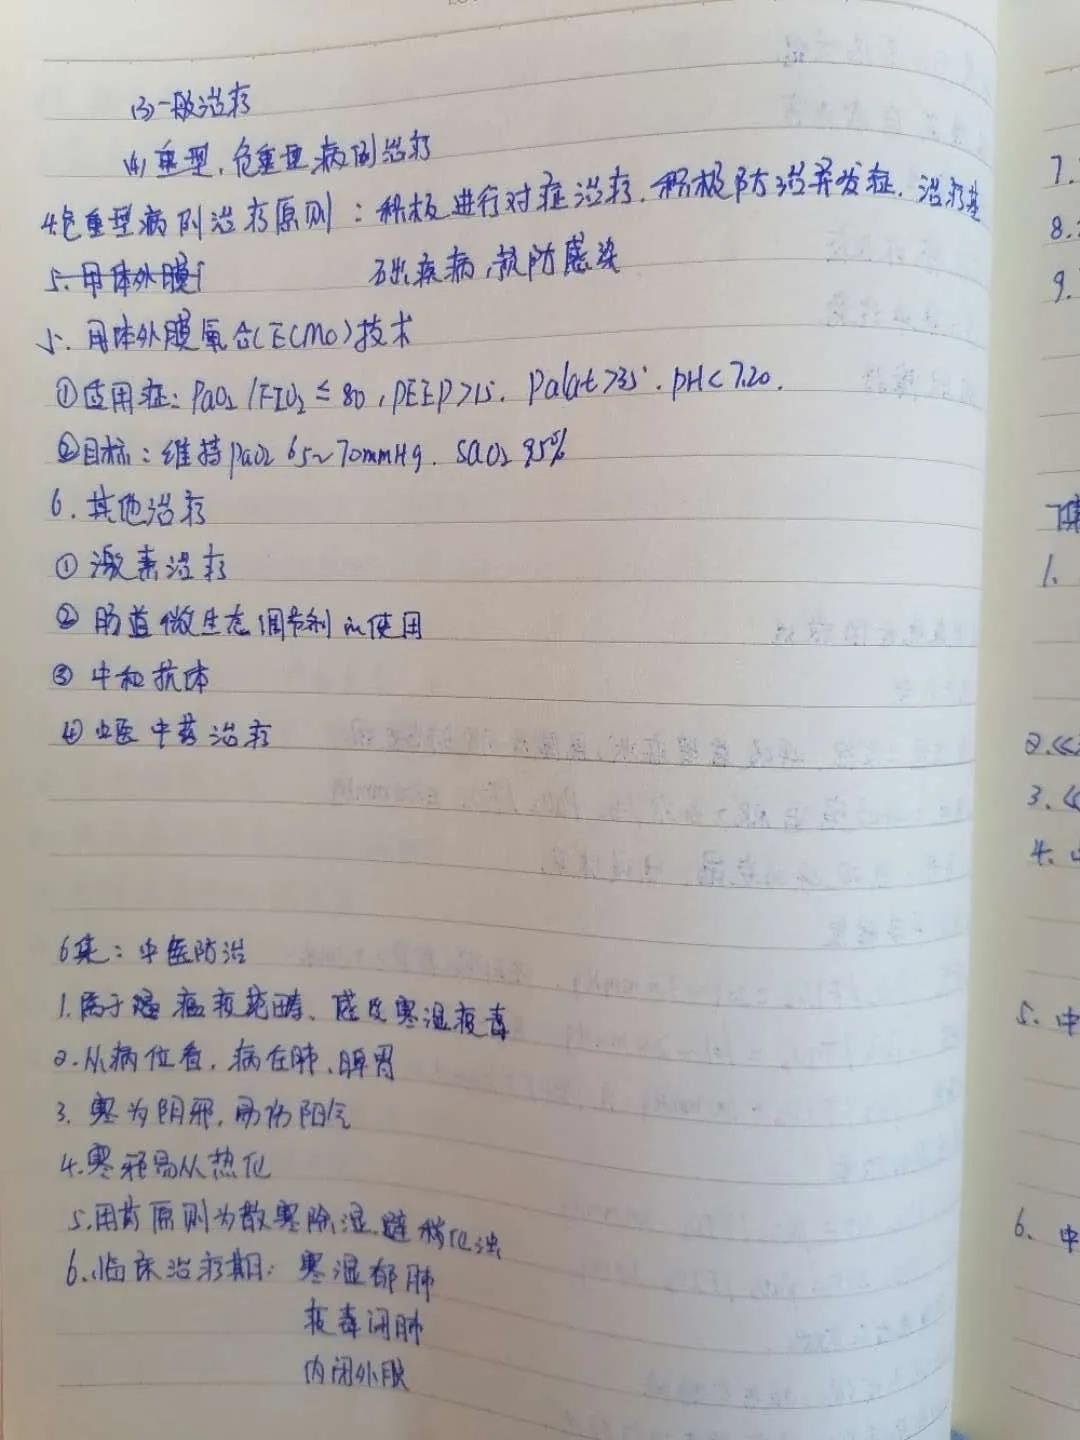 (3)一般治疗
(4)重型,危重型病例治疗
4.危重型病例治疗原则:积极进行对症治疗.积极防治并发症.治疗基
5.用体外膜
础疾病,预防感染
5.用体外膜氧合(ECMO)技术
①适用症:PaO2/FIO2≤80,PEEP>15.Palat>35.pH<7.20.
②目标:维持PaO2 65~70mmHg.SaO2 95%
6.其他治疗
①激素治疗
②肠道微生态调节剂的使用
③中和抗体
④中医中药治疗
6集:中医防治
1.属于瘟疫范畴、感受寒湿疫毒
2.从病位看,病在肺、脾胃
3.寒为阴邪,易伤阳气
4.寒邪易从热化
5.用药原则为散寒除湿,避秽化浊
6.临床治疗期:寒湿郁肺
疫毒闭肺
内闭外脱
7.
8.
9.
1.
2.《
3.《
4.
5.中
6.中